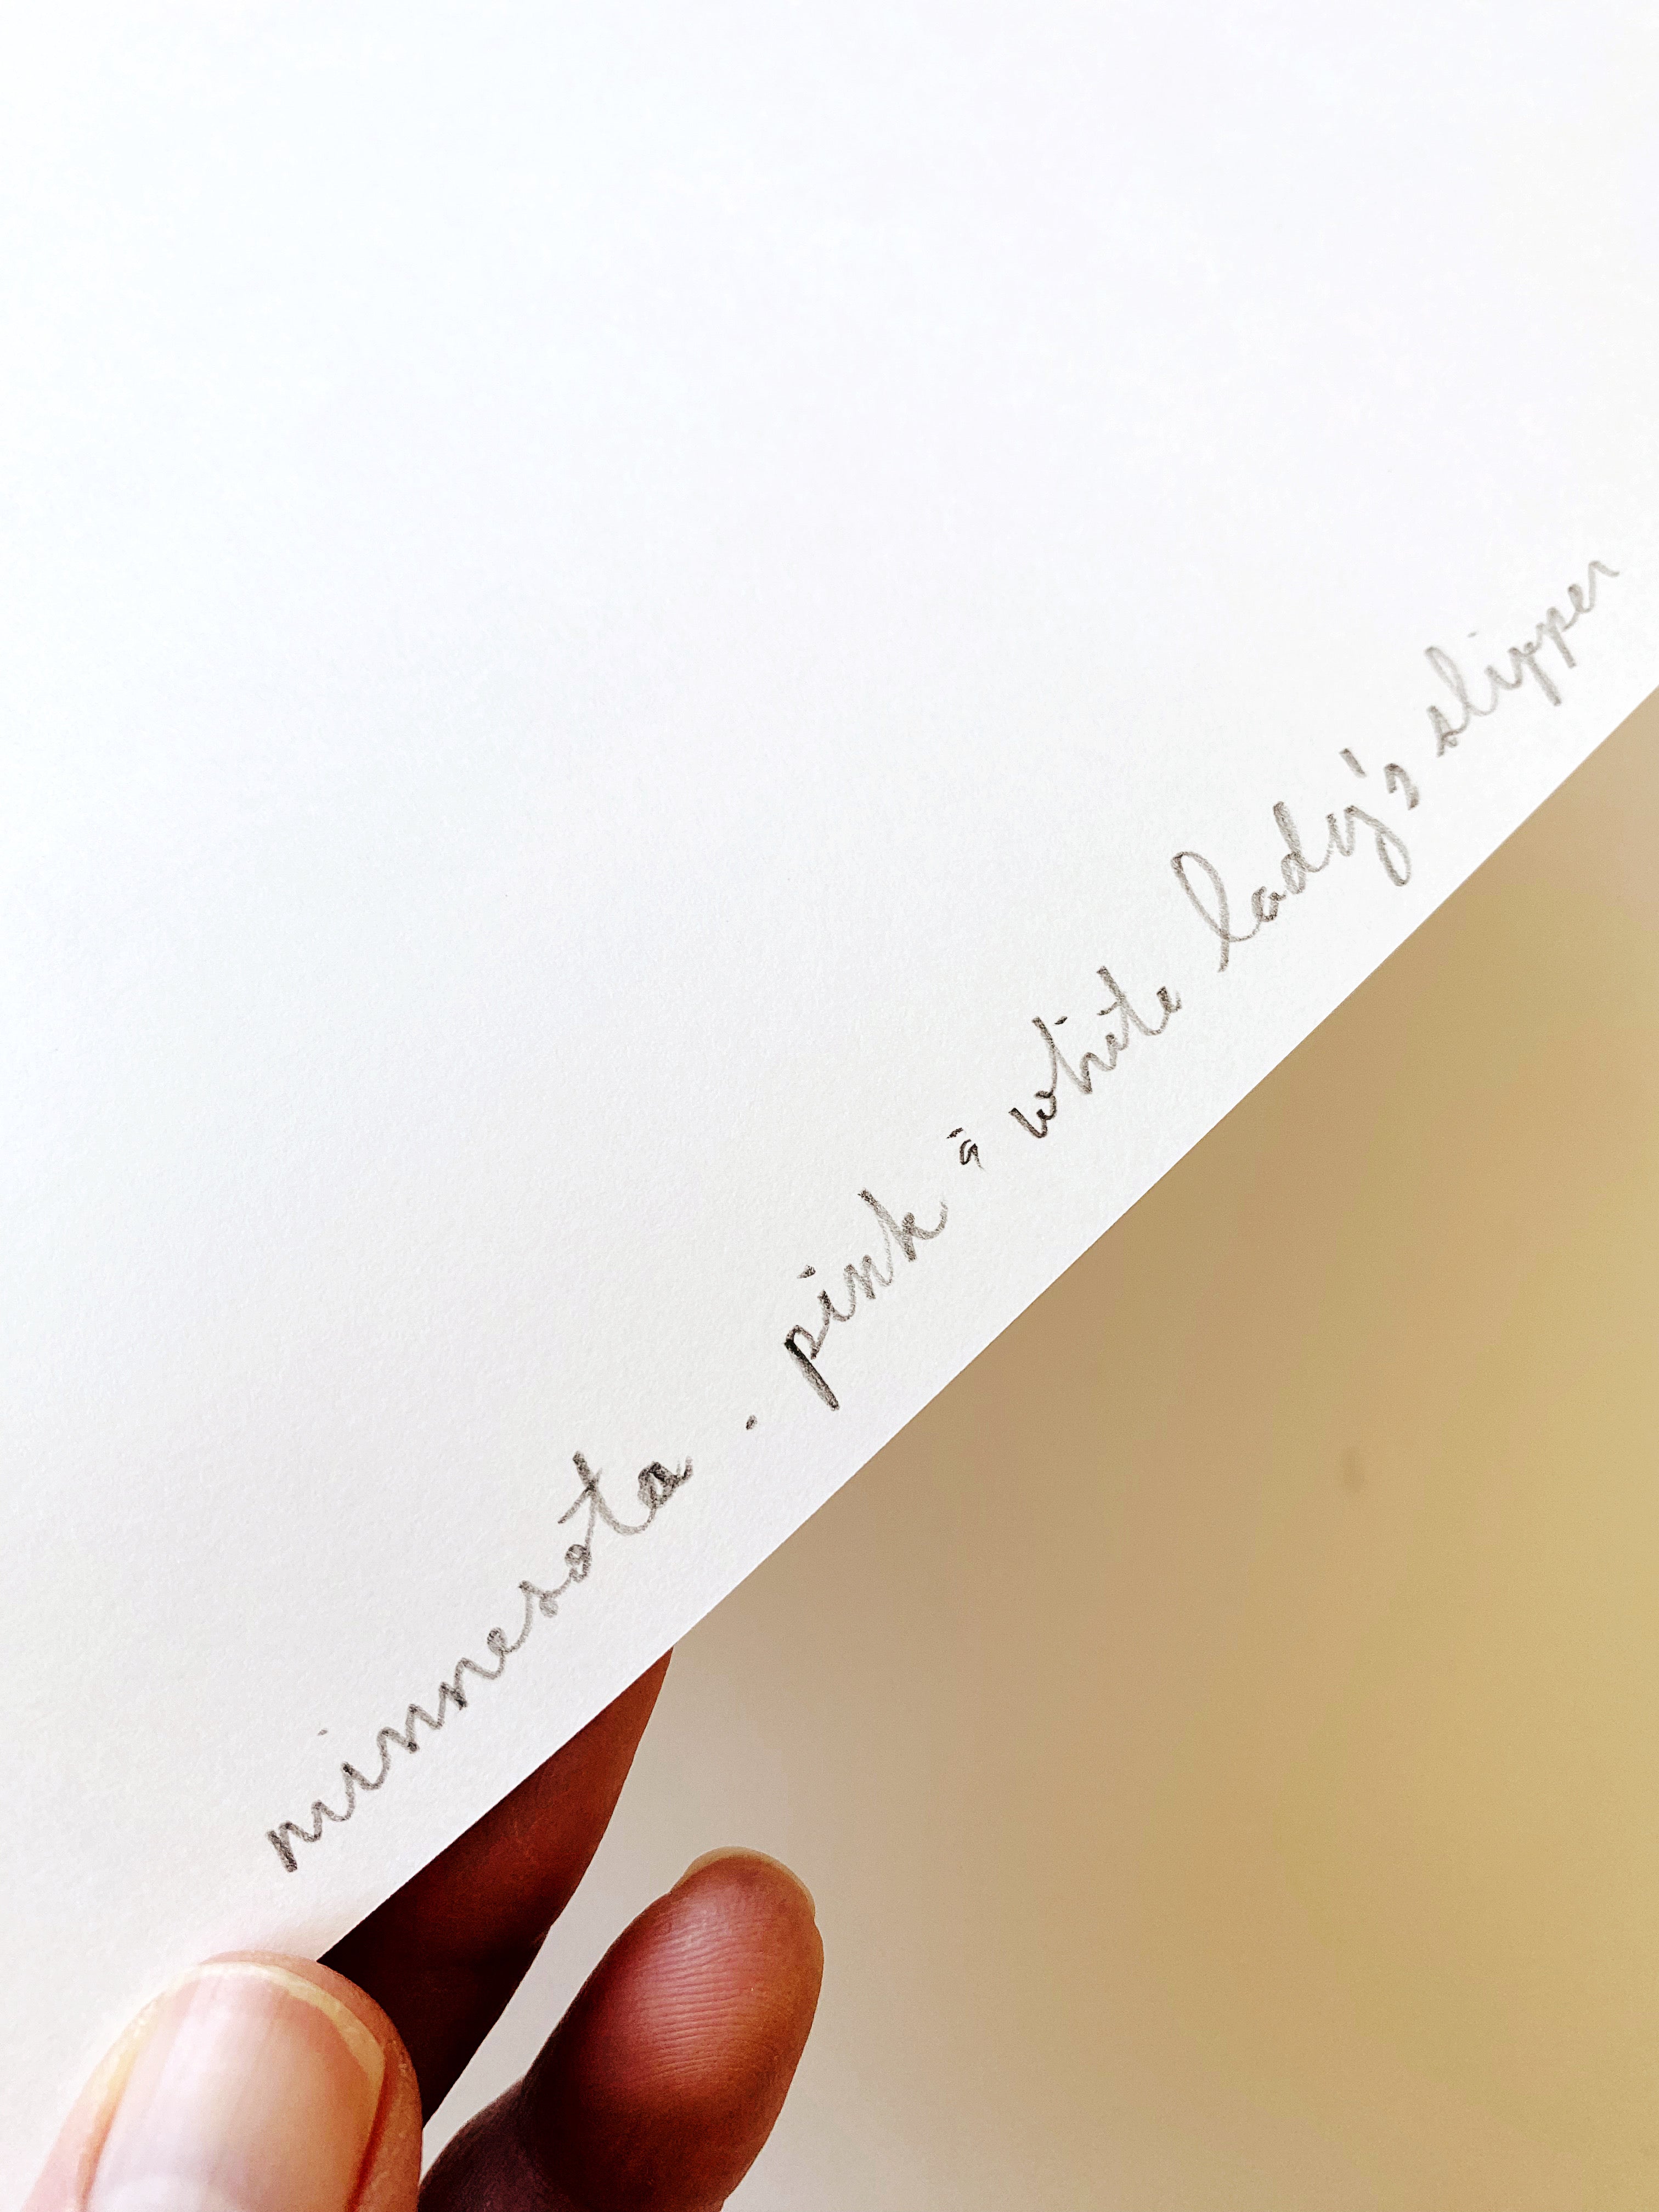 minnesota · pink & white lady's slipper